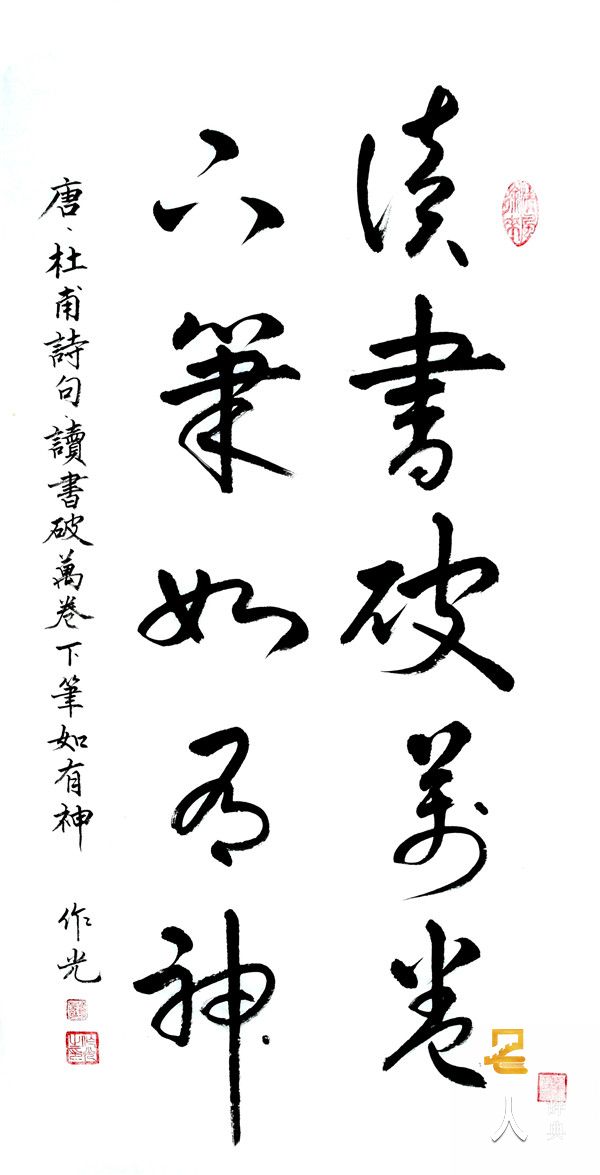 讀書破萬卷
下筆如有神
唐、杜甫詩句、讀書破萬卷下筆如有神 作光
名人辞典